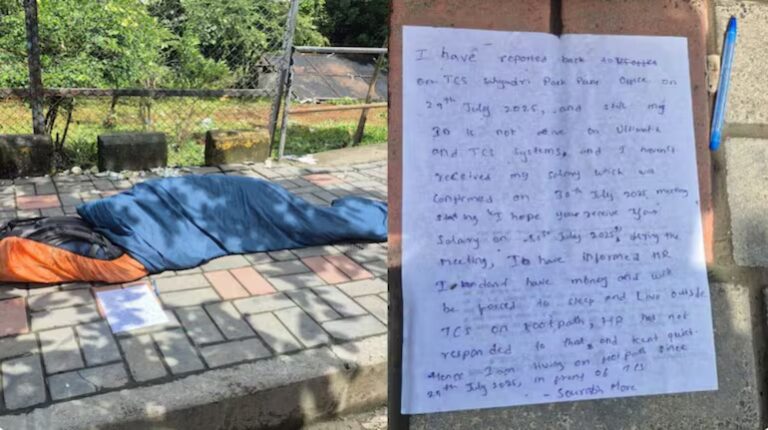 I have reported back to office
on TCS Sahyadri Park Pune Office on
29th July 2025, and still my
ID is not active on Ultimatix
and TCS Systems, and I haven't
received my salary which was
confirmed on 30th July 2025 meeting
stating "I hope you receive your
Salary on 31st July 2025", during the
meeting, I have informed HR
I don't have money and will
be forced to sleep and Live outside
TCS on footpath, HR has not
responded to that, and kept quiet.
Hence I am living on footpath since
29th July 2025, in front of TCS
- Sourabh More